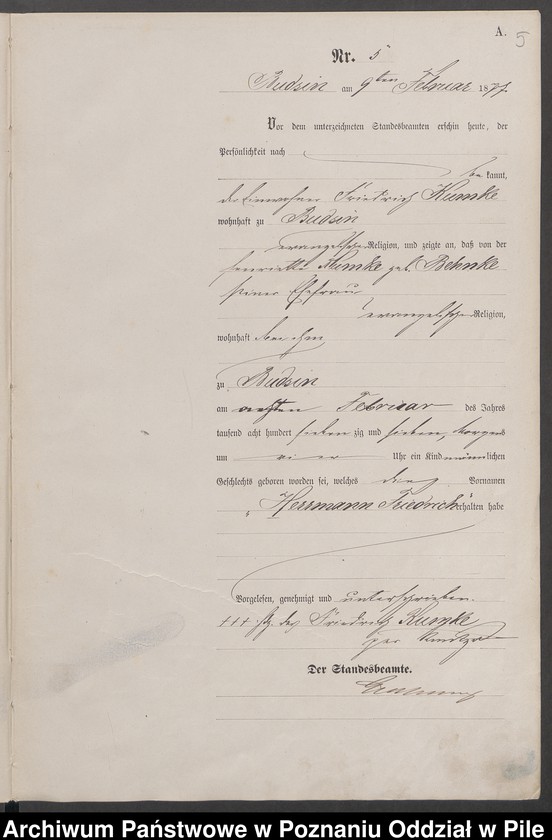 A.
5
Nr. 5
Budsin am 9ten Februar 1877.
Vor dem unterzeichneten Standesbeamten erschien heute, der
Persönlichkeit nach
be kannt,
der Einwohner Friedrich Kumke
wohnhaft zu Budsin
evangelischer Religion, und zeigte an, daß von der
Henriette Kumke geb. Behnke
seiner Ehefrau
evangelischer Religion,
wohnhaft bei ihm
zu Budsin
am achten Februar des Jahres
tausend acht hundert sieben zig und sieben, Morgens
um vier Uhr ein Kind männlichen
Geschlechts geboren worden sei, welches die Vornamen
„Herrmann Friedrich" erhalten habe
Vorgelesen, genehmigt und unterschrieben.
+++ des Friedrich Kumke
Der Standesbeamte.
Archiwum Państwowe w Poznaniu Oddział w Pile